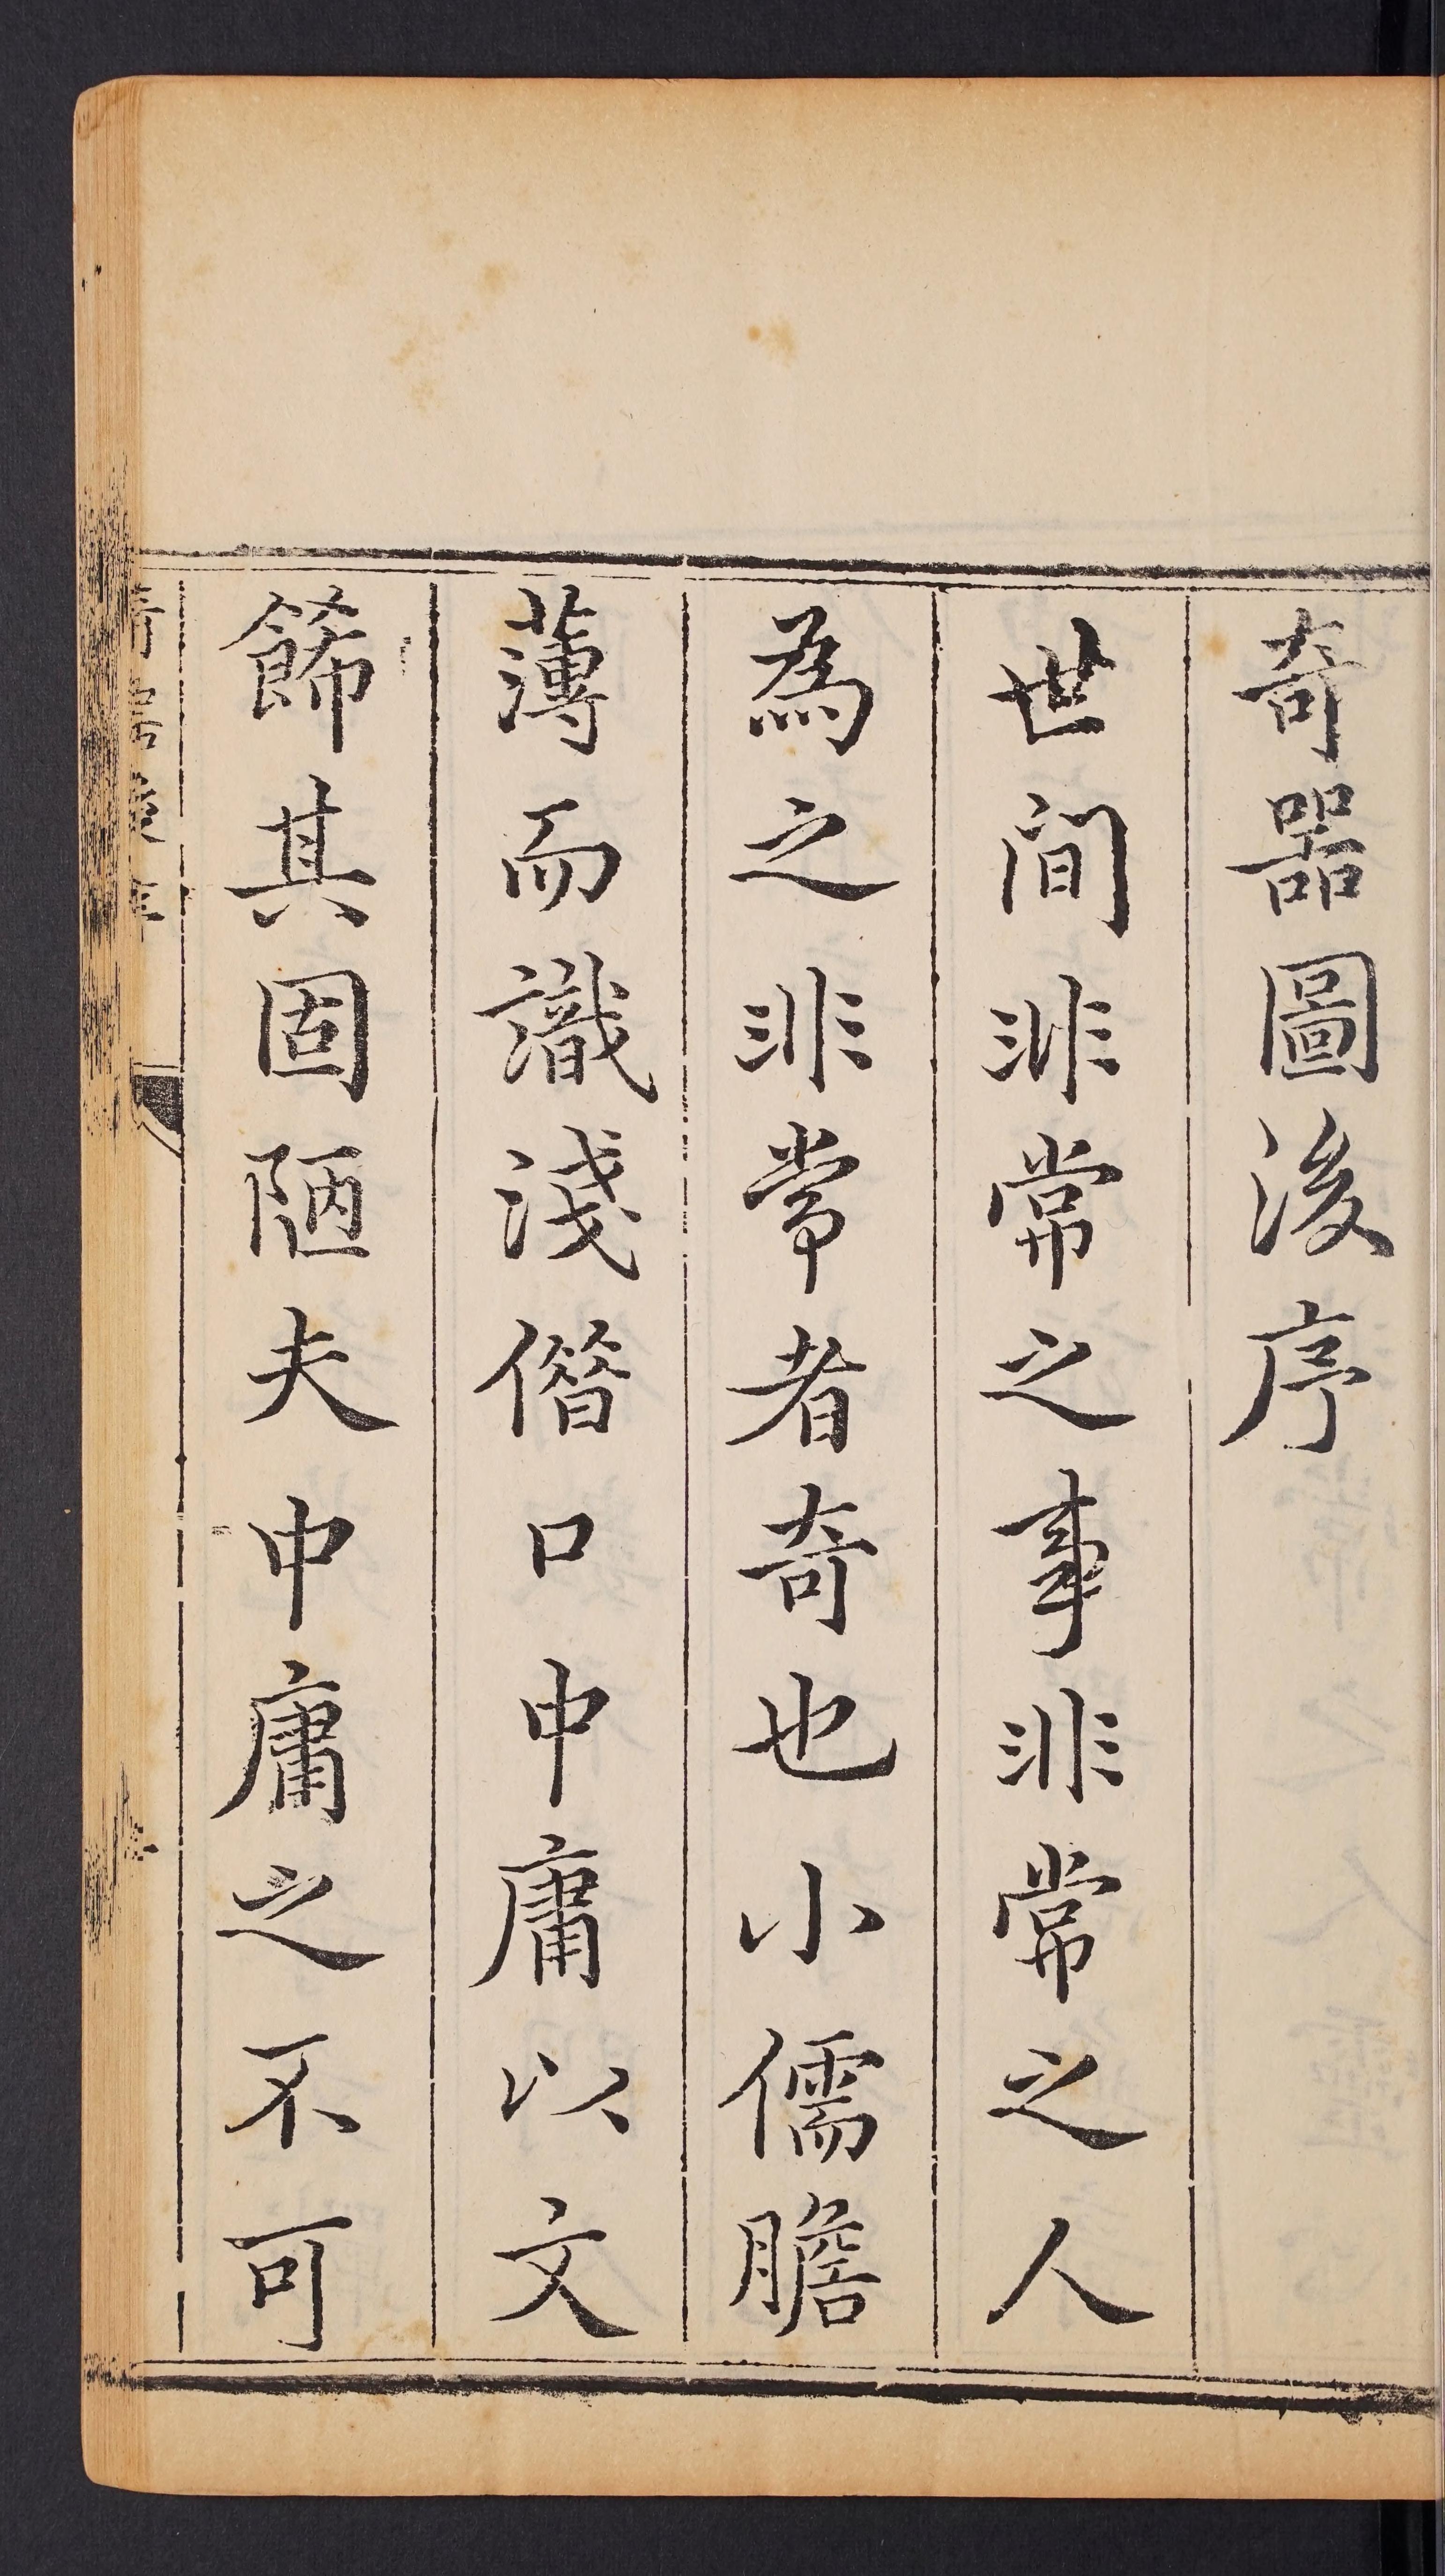 奇器圖後序
世間非常之事非常之人
為之非常者奇也小儒膽
薄而識淺僭口中庸以文
餙其固陋夫中庸之不可